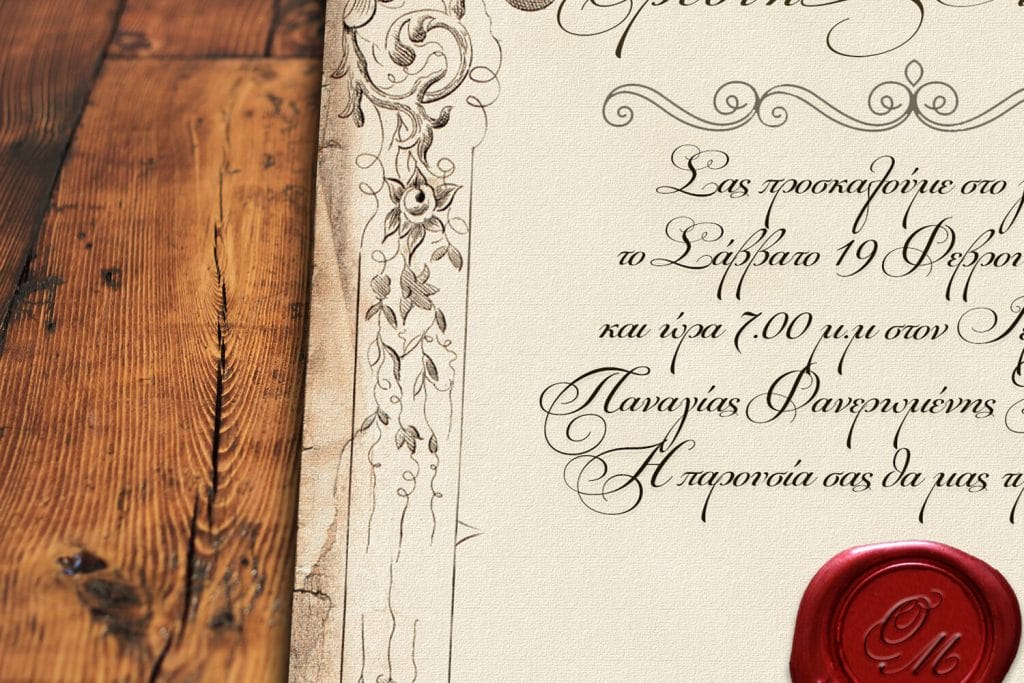 Σας προσκαλούμε στο
το Σάββατο 19
και ώρα 7.00 μ.μ στον
Παναγίας Φανερωμένης
Η παρουσία σας θα μας
ΘΜ